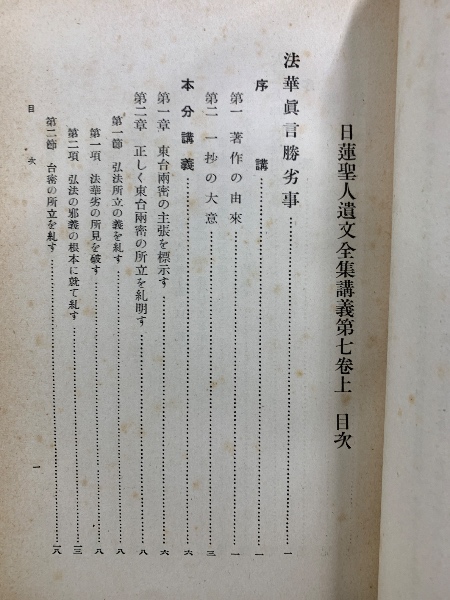 日蓮聖人遺文全集講義第七卷上 目次
法華眞言勝劣事……一
序講……一
第一 著作の由來……一
第二 一抄の大意……三
本分講義……六
第一章 東台兩密の主張を標示す……六
第二章 正しく東台兩密の所立を糺明す……八
第一節 弘法所立の義を糺す……八
第一項 法華劣の所見を破す……八
第二項 弘法の邪義の根本に就て糺す……一三
第二節 台密の所立を糺す……一八
目次 一